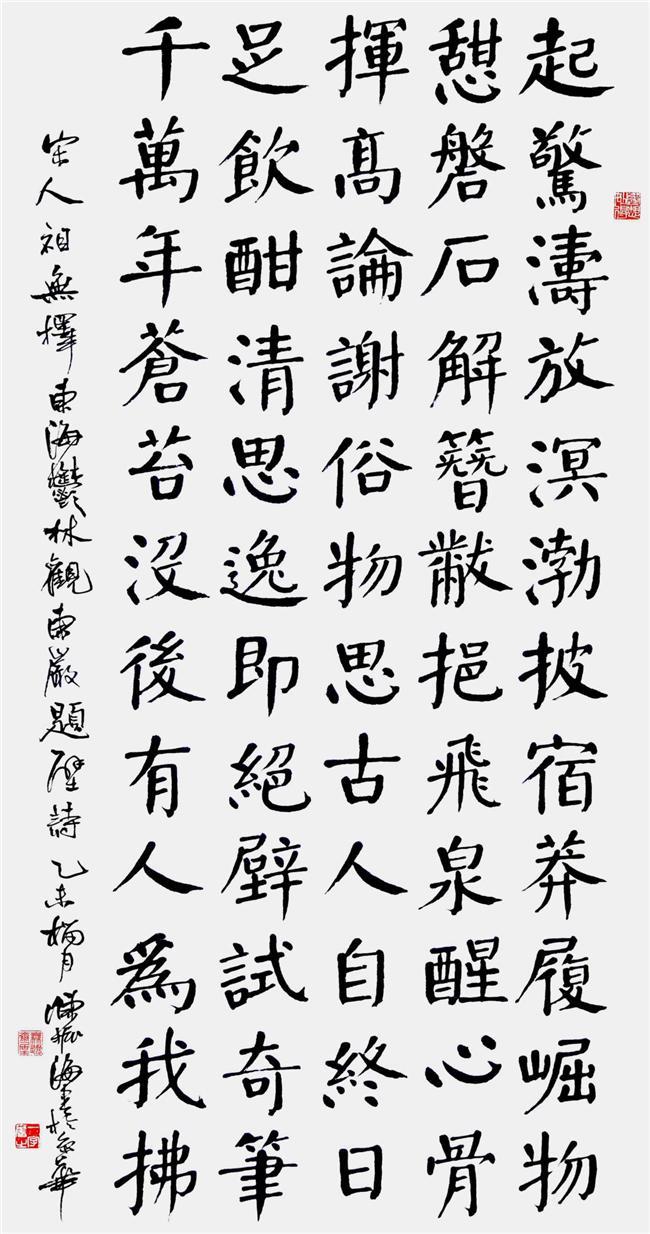 起驚濤放溟渤披宿莽履崛物
憇磐石解簪黻挹飛泉醒心骨
揮髙論謝俗物思古人自終日
足飲酣清思逸即絕壁試奇筆
千萬年蒼苔没後有人爲我拂
宋人祖無擇東海鬱林觀東巖題壁詩乙未榴月 海書於京華